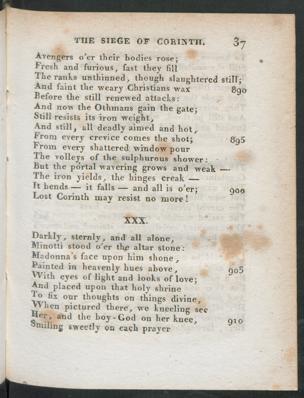 THE SIEGE OF CORINTH. 37
Avengers o'er their bodies rose;
Fresh and furious, fast they fill
The ranks unthinned, though slaughtered still;
And faint the weary Christians wax 890
Before the still renewed attacks:
And now the Othmans gain the gate;
Still resists its iron weight,
And still, all deadly aimed and hot,
From every crevice comes the shot; 895
From every shattered window pour
The volleys of the sulphurous shower:
But the portal wavering grows and weak —
The iron yields, the hinges creak —
It bends — it falls — and all is o'er; 900
Lost Corinth may resist no more!
XXX.
Darkly, sternly, and all alone,
Minotti stood o'er the altar stone:
Madonna's face upon him shone,
Painted in heavenly hues above, 905
With eyes of light and looks of love;
And placed upon that holy shrine
To fix our thoughts on things divine,
When pictured there, we kneeling see
Her, and the boy-God on her knee, 910
Smiling sweetly on each prayer